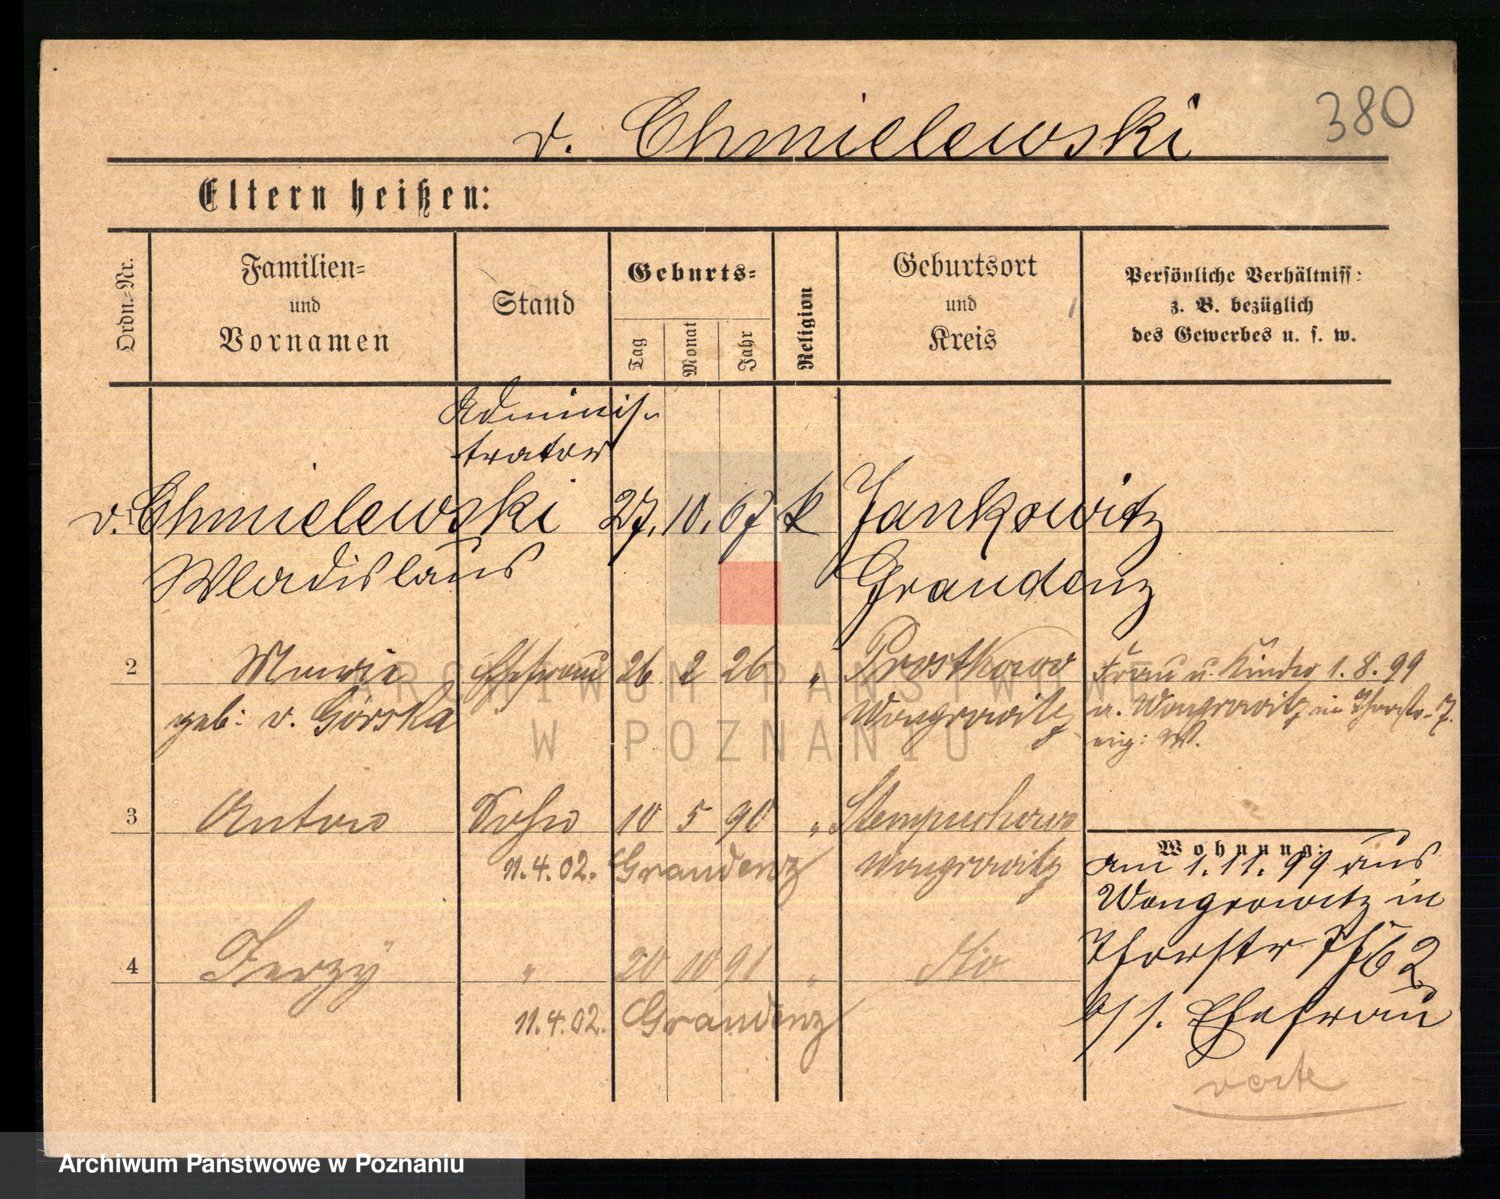 380
v. Chmielewski
Eltern heißen:
Ordn.-Nr.
Familien-
und
Vornamen
Stand
Geburts-
Tag
Monat
Jahr
Religion
Geburtsort
und
Kreis
Persönliche Verhältniss:
z. B. bezüglich
des Gewerbes u. s. w.
Adminis-
trator
v. Chmielewski 27. 10. 67 k Jankowitz
Wladislaus Graudenz
2 Marie Ehefrau 26 2 26 " Frau u. Kinder 1.8.99
geb: v. Górska Wongrowitz a. Wongrowitz in Thorstr. 7.
3 Anton Sohn 10 5 90 "
11.4.02. Graudenz Wongrowitz
Wohnung:
am 1.11.99 aus
Wongrowitz in
Thorstr
4 Jerzy " 20 10 91 " dto
11.4.02. Graudenz
b/s. Ehefrau
verte
ARCHIWUM PAŃSTWOWE
W POZNANIU
Archiwum Państwowe w Poznaniu